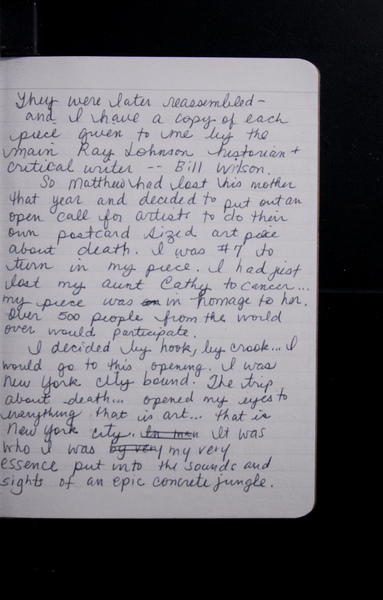 They were later reassembled -
and I have a copy of each
piece given to me by the
main Ray Johnson historian +
critical writer -- Bill Wilson.
So Matthew had lost his mother
that year and decided to put out an
open call for artists to do their
own postcard sized art piece
about death. I was #7 to
turn in my piece. I had just
lost my aunt Cathy to cancer...
my piece was on in homage to her.
Over 500 people from the world
over would participate.
I decided by hook, by crook... I
would go to this opening. I was
New York City bound. The trip
about death... opened my eyes to
everything that is art... that is
New York City. In man It was
who I was by very my very
essence put into the sounds and
sights of an epic concrete jungle.